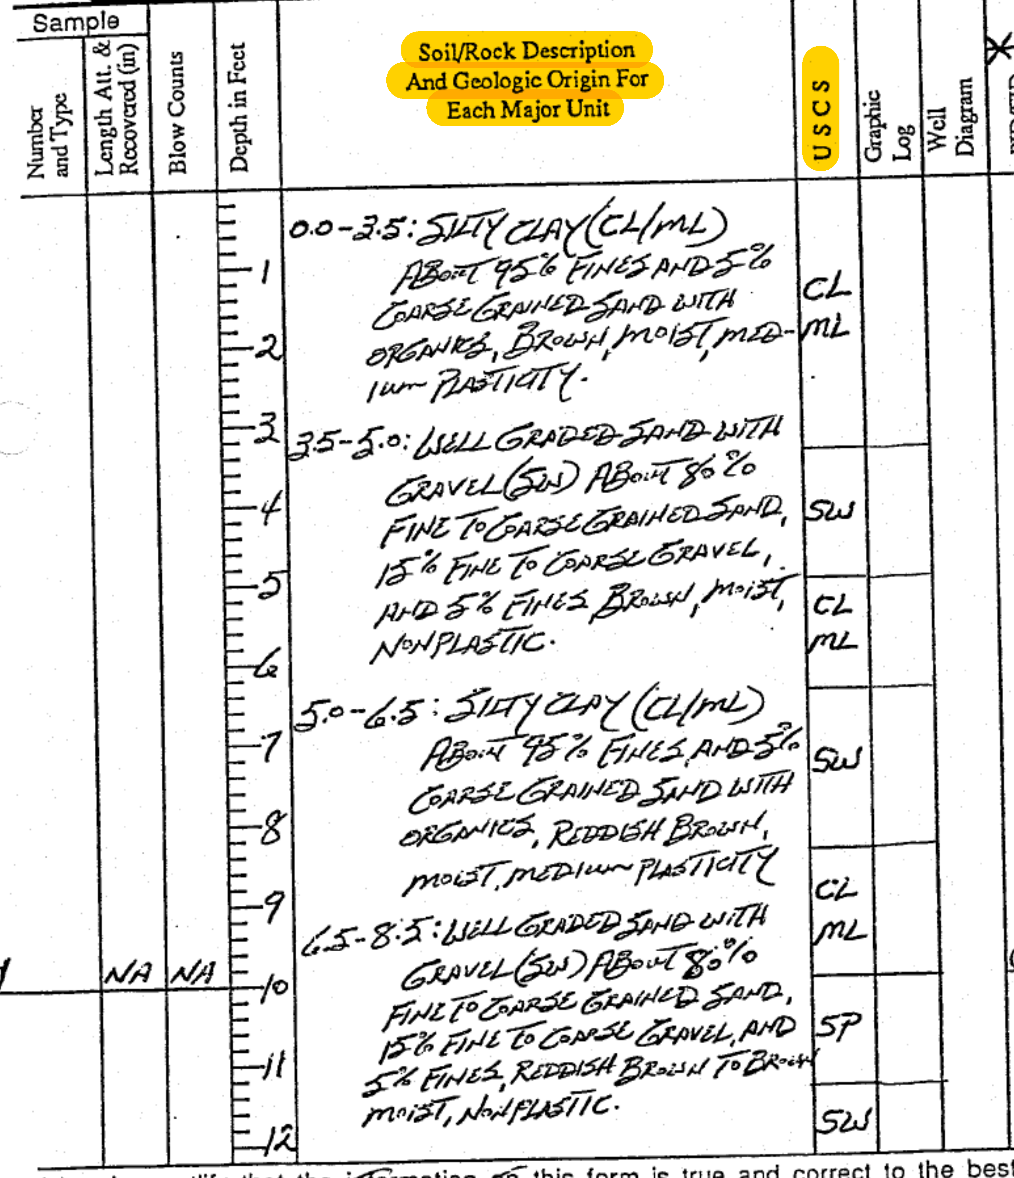 Sample
Number and Type
Length Att. & Recovered (in)
Blow Counts
Depth in Feet
Soil/Rock Description
And Geologic Origin For
Each Major Unit
USCS
Graphic Log
Well Diagram
0.0-3.5: SILTY CLAY (CL/ML)
ABOUT 95% FINES AND 5%
COARSE GRAINED SAND WITH
ORGANICS, BROWN, MOIST, MED-
IUM PLASTICITY.
3.5-5.0: WELL GRADED SAND WITH
GRAVEL (SW) ABOUT 80%
FINE TO COARSE GRAINED SAND,
15% FINE TO COARSE GRAVEL,
AND 5% FINES, BROWN, MOIST,
NONPLASTIC.
5.0-6.5: SILTY CLAY (CL/ML)
ABOUT 95% FINES, AND 5%
COARSE GRAINED SAND WITH
ORGANICS, REDDISH BROWN,
MOIST, MEDIUM PLASTICITY
6.5-8.5: WELL GRADED SAND WITH
GRAVEL (SW) ABOUT 80%
FINE TO COARSE GRAINED SAND,
15% FINE TO COARSE GRAVEL, AND
5% FINES, REDDISH BROWN TO BROWN
MOIST, NONPLASTIC.
1
2
3
4
5
6
7
8
9
10
11
12
NA
NA
CL
ML
SW
CL
ML
SW
CL
ML
SP
SW
that the information on this form is true and correct to the best